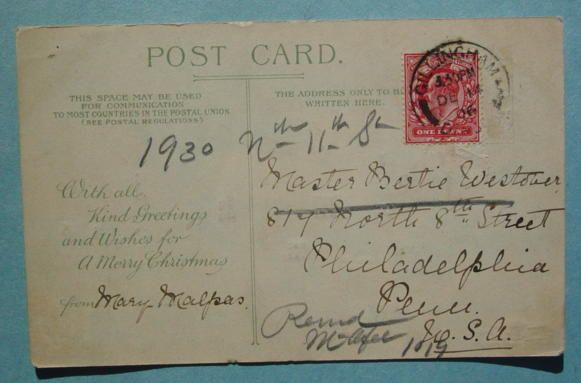 POST CARD.
THIS SPACE MAY BE USED
FOR COMMUNICATION
TO MOST COUNTRIES IN THE POSTAL UNION
(SEE POSTAL REGULATIONS)
THE ADDRESS ONLY TO BE
WRITTEN HERE.
GILLINGHAM
3.30PM
DE 14
06
ONE PENNY
1930 Nth 11th St
Master Bertie Westover
819 North 8th Street
Philadelphia
Penn.
U.S.A.
With all
Kind Greetings
and Wishes for
A Merry Christmas
from Mary Malpas.
1819